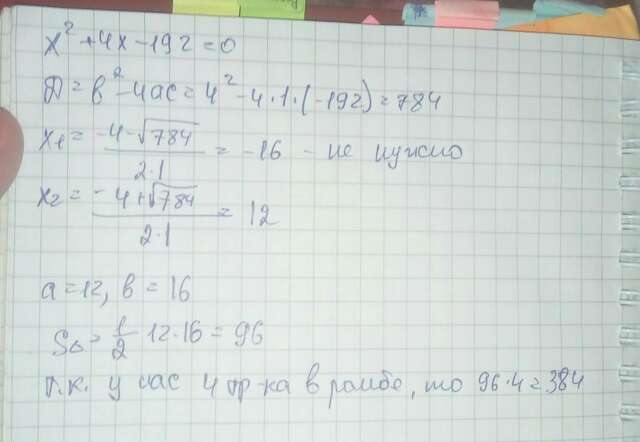 x² + 4x - 192 = 0
D = b² - 4ac = 4² - 4 · 1 · (-192) = 784
x₁ = (-4 - √784) / (2·1) = -16 - не нужно
x₂ = (-4 + √784) / (2·1) = 12
a = 12, b = 16
S△ = 1/2 12·16 = 96
т.к. у нас 4 тр-ка в ромбе, то 96·4 = 384